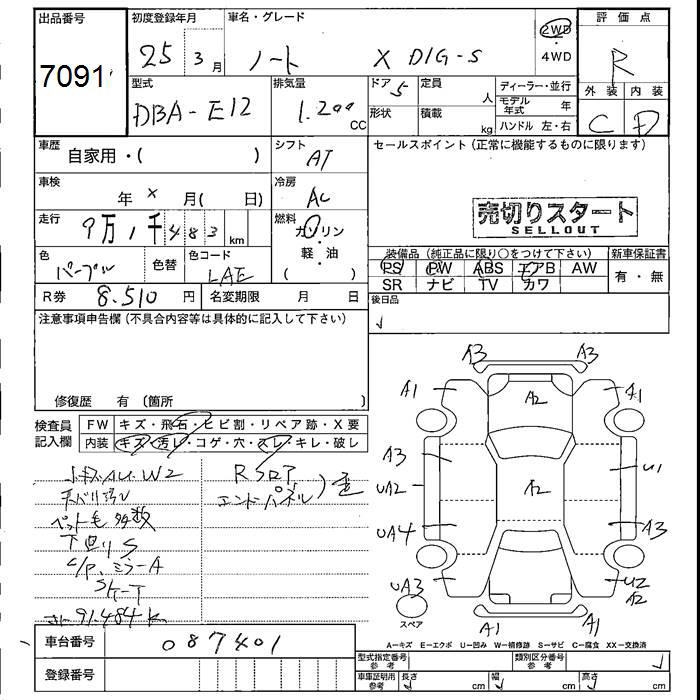 出品番号 初度登録年月 車名・グレード 2WD 評価点
7091 25 3月 ノート X DIG-S ・ R
4WD
型式 排気量 ドア 5 定員 人 ディーラー・並行 外装 内装
DBA-E12 1.200 CC 形状 積載 kg モデル年式 年 C D
ハンドル 左・右
車歴 自家用・( ) シフト AT セールスポイント (正常に機能するものに限ります)
車検 年 × 月( 日) 冷房 AC
走行 9万1千483 km 燃料 ガソリン・軽油 ( )
売切りスタート
SELLOUT
色 パープル 色替 色コード LAE
装備品 (純正品に限り○をつけて下さい) 新車保証書
PS PW ABS エアB AW 有・無
SR ナビ TV カワ
R券 8.510 円 名変期限 月 日 後日品
注意事項申告欄 (不具合内容等は具体的に記入して下さい)
修復歴 有 (箇所 )
検査員記入欄 FW キズ・飛石・ヒビ割・リペア跡・X要
内装 キズ・汚レ・コゲ・穴・スレ・キレ・破レ
小キズAU.W2 Rフロア
エンドパネル
ペット毛多数
下廻りS
C/P、ミラーA
91.484k
A3 A3
A1 A2 A1
A3 U1
UA2 A2
UA4 A3
UA3 U2
A2
スペア A1 A1
A−キズ E−エクボ U−凹み W−補修跡 S−サビ C−腐食 XX−交換済
車台番号 087401 型式指定番号 参考 類別区分番号 参考
登録番号 車庫証明用 参考 長さ cm 幅 cm 高さ cm